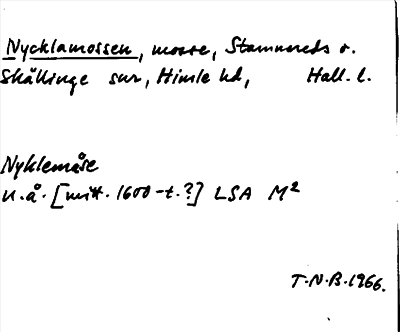 Nycklamossen, mosse, Stamnareds o.
Skällinge snr, Himle hd, Hall. l.
Nyklemåse
u.å. [mitt. 1600-t.?] LSA M²
T.N.B. 1966.